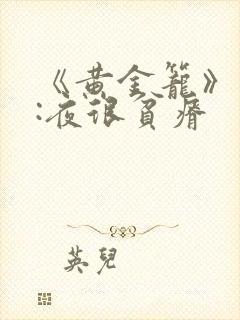 《黄金籠》
:夜很貧瘠
英兒